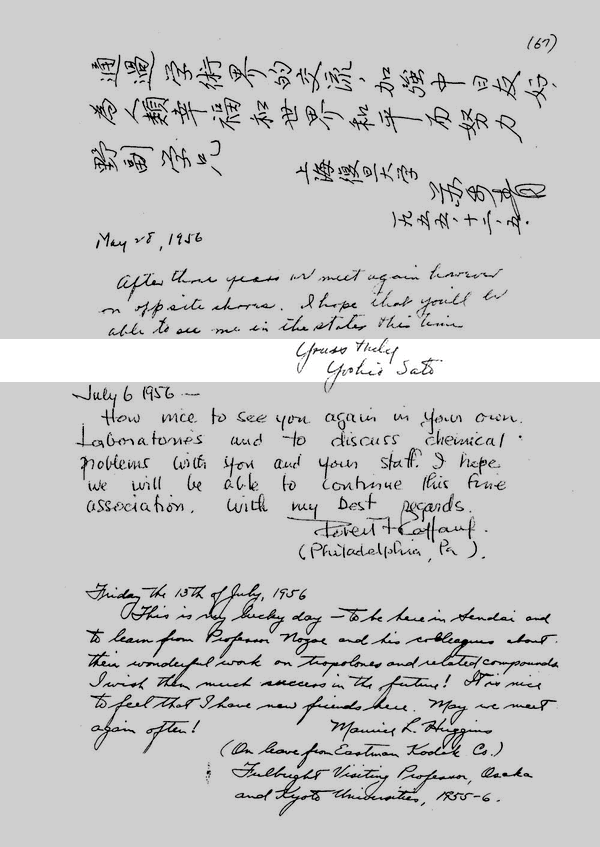 (67)
通過学術界的交流,加強中日友好,
為人類幸福和世界和平而努力
野副学兄
上海復旦大学
苏步青
一九五五、十二、五.
May 28, 1956
After three years we meet again however
on opposite shores. I hope that you'll be
able to see me in the states this time
Yours truly
Yoshio Sato
July 6 1956 —
How nice to see you again in your own
Laboratories and to discuss chemical
problems with you and your staff. I hope
we will be able to continue this fine
association. With my best regards.
Robert F Raffauf.
(Philadelphia, Pa).
Friday the 13th of July, 1956
This is my lucky day — to be here in Sendai and
to learn from Professor Nozoe and his colleagues about
their wonderful work on tropolones and related compounds.
I wish them much success in the future! It is nice
to feel that I have new friends here. May we meet
again often!
Maurice L. Huggins
(On leave from Eastman Kodak Co.)
Fulbright Visiting Professor, Osaka
and Kyoto Universities, 1955-6.